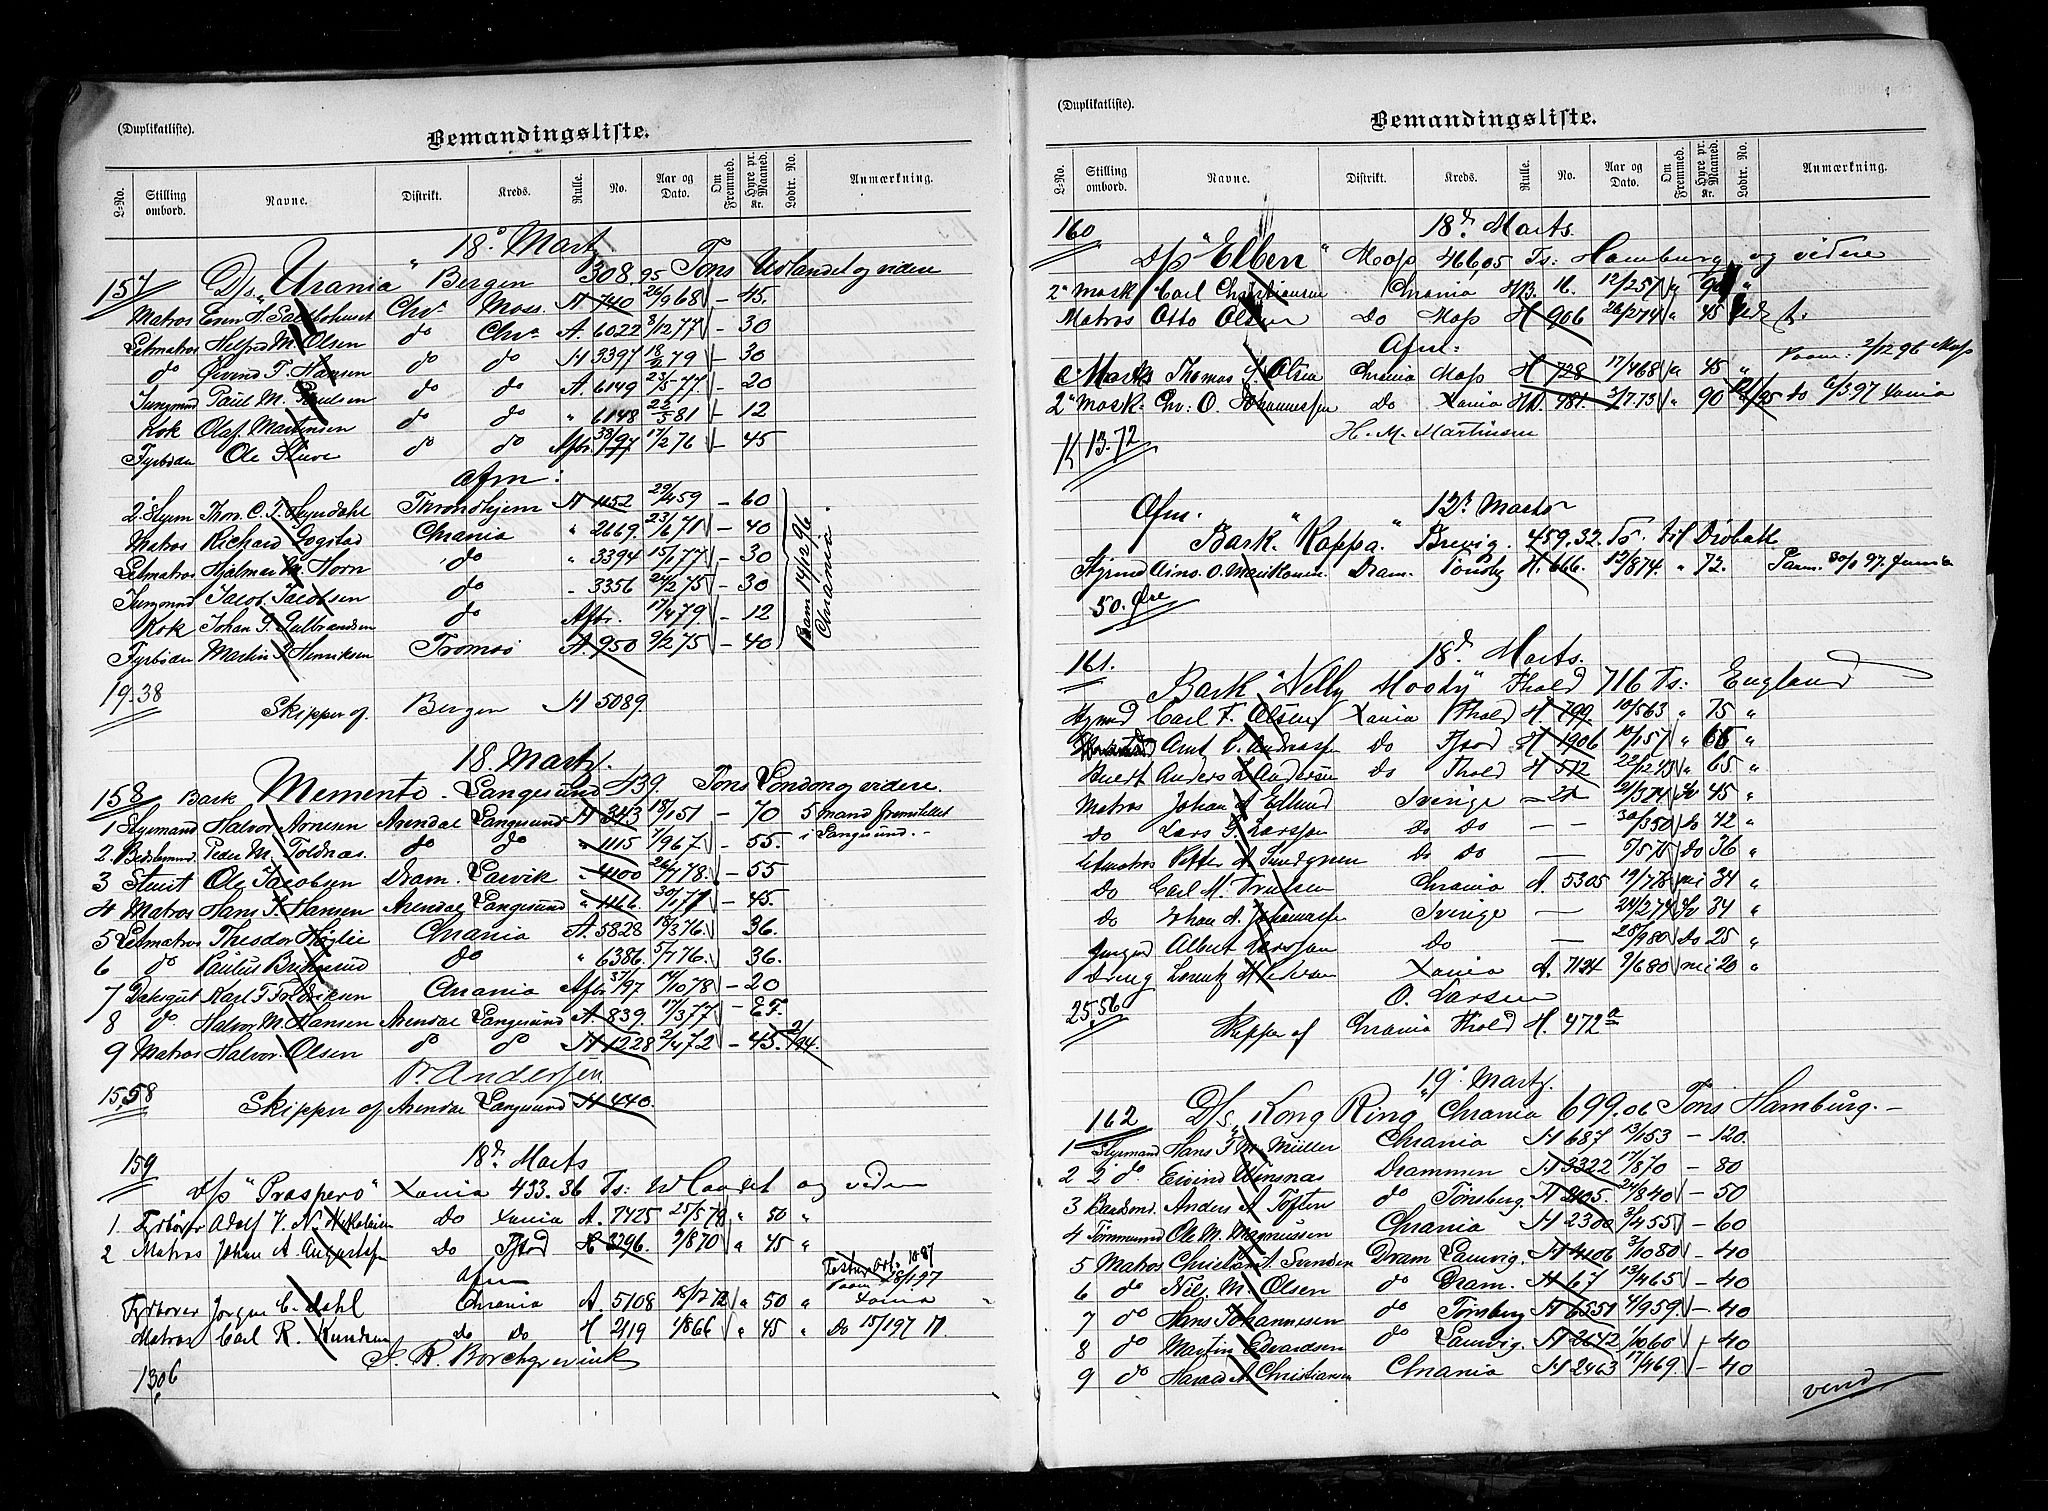 (Duplikatliste).
Bemandingsliste.
L-No. Stilling ombord. Navne. Distrikt. Kreds. Rulle. No. Aar og Dato. Om Fremmed. Hyre pr. Maaned. Kr. Lodtr. No. Anmærkning.
18d Martz
157 D/s "Urania" Bergen 308.95 Tons Udlandet og videre
Matros H. Chra Moss A 740 26/9 68 - 45.
Letmatros M. Olsen do Chra A. 6022 8/12 77 - 30
do Øivind T. Hansen do do A 3397 18/2 79 - 30
Jungmnd Paul M. Paulsen do do A. 6149 23/5 77 - 20
Kok Olaf Martinsen do do " 6148 22/5 81 - 12
Fyrbøder Ole do do Afbr. 38/97 17/2 76 - 45
Afm:
2. Styrm Thorv. C. F. Throndhjem A 1152 29/4 59 - 60
Matros Richard Gogstad Chrania " 2669 23/6 71 - 40
Letmatros Hjalmar M. Horn do " 3394 15/1 77 - 30
Jungmnd Jacob Jacobsen do - 3356 24/2 75 - 30
Kok Johan G. Gulbrandsen do Afbr. 17/4 79 - 12
Fyrbøder Martin J. Henriksen Tromsø A. 950 9/2 75 - 40
Paam 14/12 96 Chrania
19.38
Skipper af Bergen A 5089.
18. Martz.
158 Bark Memento. Langesund 439. Tons London og videre.
1 Styrmand Halvor Arnesen Arendal Langesund A 343 18/1 51 - 70 5 mand fremstillet
2. Peder M. Toldnæs. do do " 1115 7/9 67 - 55. i Langesund. -
3 Stuert Ole Jacobsen Dram. Larvik - 4100 26/7 78 - 55
4 Matros Hans P. Hansen Arendal Langesund " 1166 30/1 77 - 45.
5 Letmatros Theodor Høglie Chrania A. 5828 18/3 76. 36.
6 do Paulus do " 6386 5/7 76. - 36.
7 Dæksgut Karl F. Fredriksen Chrania Afbr. 37/97 14/10 78 - 20
8 do. Halvor M. Hansen Arendal Langesund A. 839 17/3 77 - E F.
9 Matros Halvor Olsen do do A 1228 2/4 72 - 45. 2/94.
P. Andersen.
15,58 Skipper af Arendal Langesund A 440.
18d Marts
159
D/s "Prospero" Xania 433.36 Ts: Udlandet og videre
1 Fyrbøder Adolf V. N. Nikolaisen Do Xania A. 7425 25/5 78 " 50 "
2 Matros Johan A. Augustsen do Fstad H 3296. 9/8 70 " 45 "
Afm
Fyrbøder Jørgen C. Dahl Chrania A. 5108 18/7 72 " 50 " Paam 28/1 97 Xania
Matros Carl R. Knudsen Do Do H 2119 1/8 66 " 45 " Do 15/1 97
J. R. Borchgrevink
13,06
(Duplikatliste).
Bemandingsliste.
L-No. Stilling ombord. Navne. Distrikt. Kreds. Rulle. No. Aar og Dato. Om Fremmed. Hyre pr. Maaned. Kr. Lodtr. No. Anmærkning.
160 18d Marts.
D/s "Elben" Moss 466,05 Ts: Hamburg og videre
2' Mask Carl Christiansen Chrania MB. 16. 12/2 57 " 90 "
Matros Otto Olsen Do Moss H 906 26/2 74 " 45
Afm:
Thomas J. Olsen Chrania Moss H 728 17/4 68 " 45 " Paam. 2/12 96 Moss
2' Mask. Chr. O. Johannessen do Xania 481. 3/7 73 " 90 12/95 do 6/3 97 Xania
H. M. Martinsen
K 13.72
Afm. 12t Marts
Bark "Kappa" Brevig. 459.32. Ts. til Drøbak
Styrmd O. Dram. Tønsbg H. 666. 12/8 74. " 72. Paam. 30/1 97.
50. Øre
161. 18d. Marts.
Bark "Nelly Moody" Thold 716 Ts: England
Styrmd Carl F. Olsen Xania Thold H. 799. 10/5 63 " 75 "
Arnt Do Fstad H 1906 14/1 57 " 65 "
Stuert Anders L. Andersen Do Thold H 512 22/12 43 " 65 "
Matros Johan A. Eklund Sverige - 21/3 74 Sv 45 "
do Lars G. Larsson Do Do - - 30/3 50 do 42 "
Letmatros Petter A. Do Do - 5/5 75 Do 36 "
Do Carl M. Chrania A. 5305 19/7 78 nei 34 "
do Johan A. Johansson Sverige - 24/2 74 Sv 34 "
Jungmd Albert Larsson Do - 25/9 80 Do 25 "
Dreng Lorentz Xania A. 7124 9/6 80 nei 20 "
O. Larsen
25,56 Skipper af Chrania Thold H. 472a
19d Martz.
162 D/s "Kong Ring" Chrania 699.06 Tons Hamburg. -
1 Styrmand Hans F. M. Müller Chrania A 687 13/1 53 - 120.
2 2' do. Eivind Winsnæs Drammen A 3322 17/8 70 - 80
3 Baadsmd. Anders A. Toften do Tønsberg. A 2105 24/8 40 - 50
4 Tømmermnd Ole M. Magnussen Chrania A 2300 31/4 55 - 60
5 Matros Christian A. Svendsen Dram Laurvig. A 4106 3/10 80 - 40
6 do Nils. M. Olsen do Dram. A 67 13/4 65 - 40
7 do Hans Johannesen do Tønsberg A 6551 4/9 59. - 40
8 do Martin Edvardsen do Laurvig. A 2642 1/10 60 - 40
9 do Harald A. Christiansen Chrania A 2463 17/4 69. - 40
vend